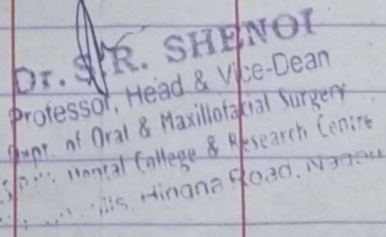 Dr. S.R. SHENOI
Professor, Head & Vice-Dean
Dept. of Oral & Maxillofacial Surgery
Dental College & Research Centre
Hingna Road, Nagpur